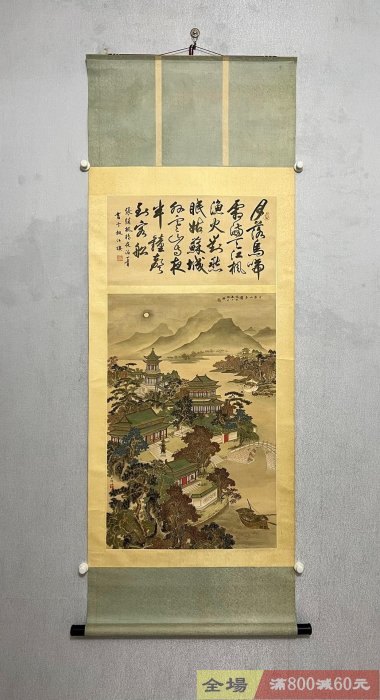 月落烏啼
霜滿天江楓
漁火對愁
眠姑蘇城
外寒山寺夜
半鐘聲
到客船
張繼楓橋夜泊
全場
滿800減60元